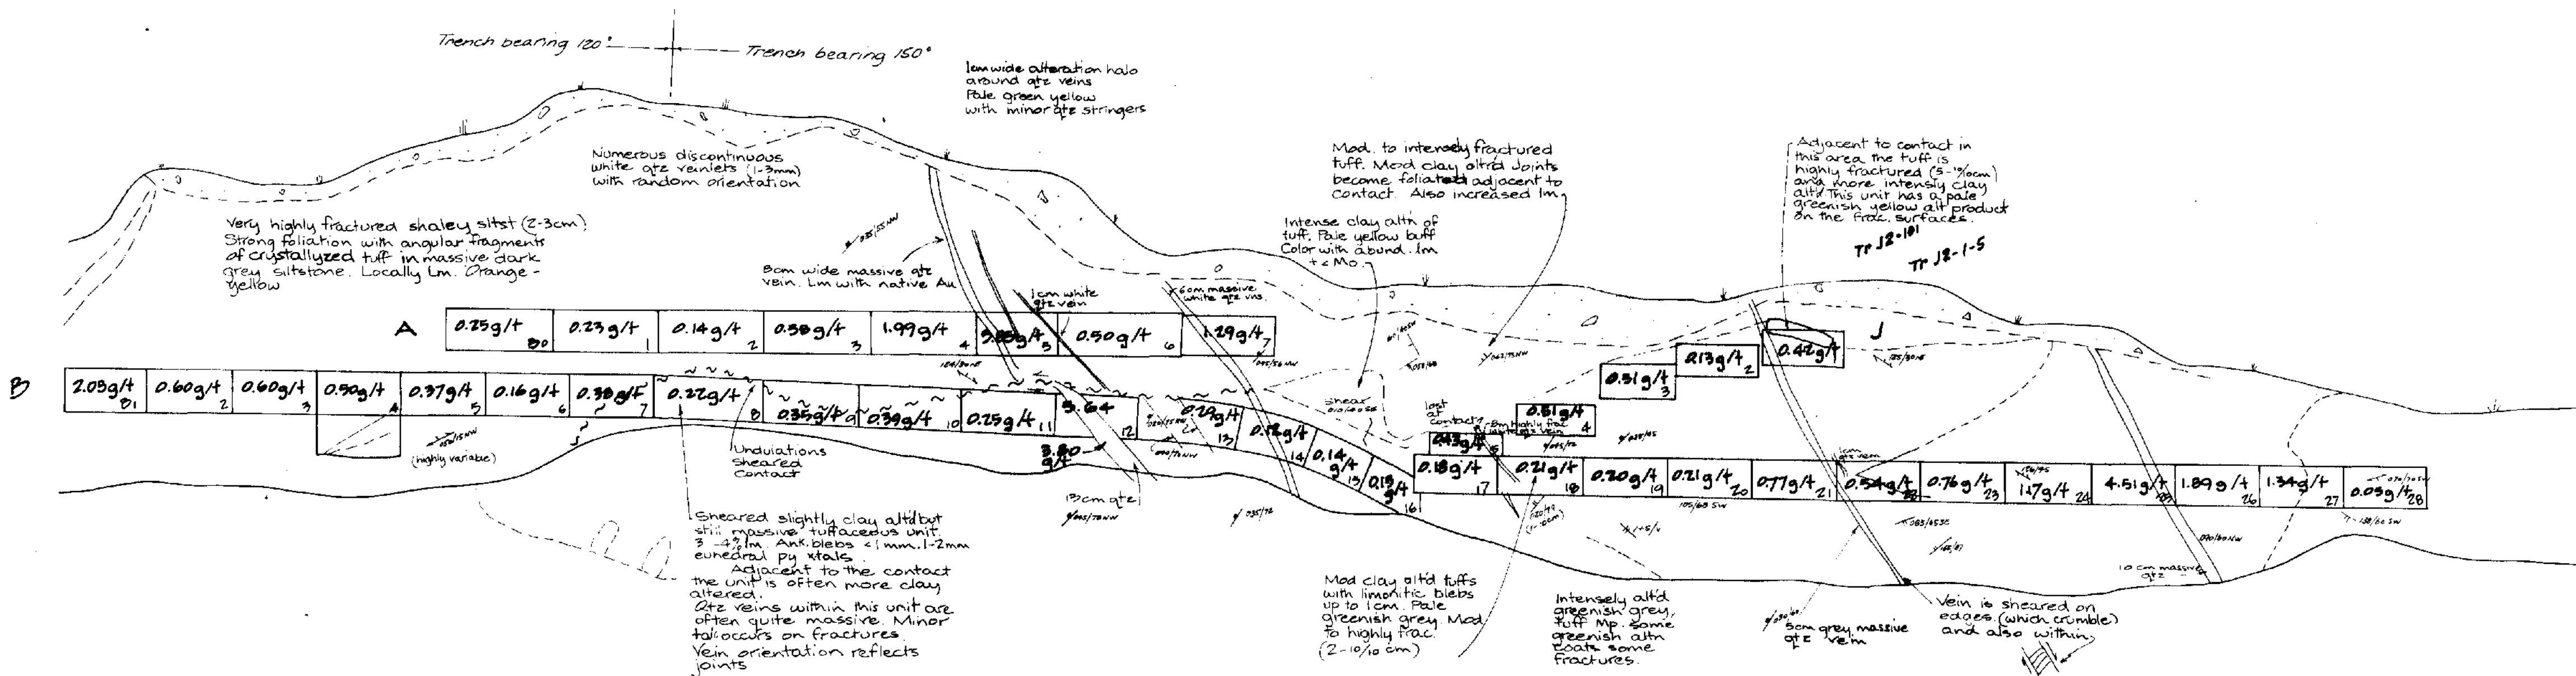 Trench bearing 120°
Trench bearing 150°
1cm wide alteration halo
around qtz veins
Pale green yellow
with minor qtz stringers
Numerous discontinuous
white qtz veinlets (1-3mm)
with random orientation
Very highly fractured shaley sltst (2-3cm)
Strong foliation with angular fragments
of crystallyzed tuff in massive dark
grey siltstone. Locally Lm. Orange-
yellow
8cm wide massive qtz
vein. Lm with native Au
1cm white
qtz vein
6cm massive
white qtz vns.
Mod. to intensely fractured
tuff. Mod clay altrd Joints
become foliated adjacent to
contact. Also increased lm
Intense clay altn of
tuff. Pale yellow buff
Color with abund. lm
+ < Mo.
Adjacent to contact in
this area the tuff is
highly fractured
and more intensly clay
alt'd This unit has a pale
greenish yellow alt product
on the frac. surfaces.
Tr J2-101
Tr J2-1-5
A
0.25g/t
0.23g/t 1
0.14g/t 2
0.58g/t 3
1.99g/t 4
5
0.50g/t 6
1.29g/t 7
J
0.42g/t
0.13g/t 2
0.31g/t 3
0.51g/t 4
0.43g/t 5
B
2.03g/t
0.60g/t 2
0.60g/t 3
0.50g/t 4
0.37g/t 5
0.16g/t 6
0.38g/t 7
0.22g/t 8
0.35g/t 9
0.39g/t 10
0.25g/t 11
12
0.29g/t 13
0.12g/t 14
0.14 g/t 15
16
0.18g/t 17
0.21g/t 18
0.20g/t 19
0.21g/t 20
0.77g/t 21
0.54g/t 22
0.76g/t 23
1.17g/t 24
4.51g/t 25
1.89g/t 26
1.34g/t 27
0.05g/t 28
3.80
g/t
(highly variable)
Undulations
sheared
contact
shear
lost
at
contact?
1cm
qtz vein
13cm qtz
035/72
105/60 SW
070/60NW
10 cm massive
qtz
Sheared slightly clay altd but
still massive tuffaceous unit.
3-4% lm. Ank. blebs <1mm. 1-2mm
euhedral py xtals
Adjacent to the contact
the unit is often more clay
altered.
Qtz veins within this unit are
often quite massive. Minor
talc occurs on fractures.
Vein orientation reflects
joints
Mod clay alt'd tuffs
with limonitic blebs
up to 1cm. Pale
greenish grey. Mod
to highly frac.
(2-10/10 cm)
Intensely alt'd
greenish grey,
tuff Mp. some
greenish altn
coats some
fractures.
5cm grey massive
qtz vein
Vein is sheared on
edges (which crumble)
and also within